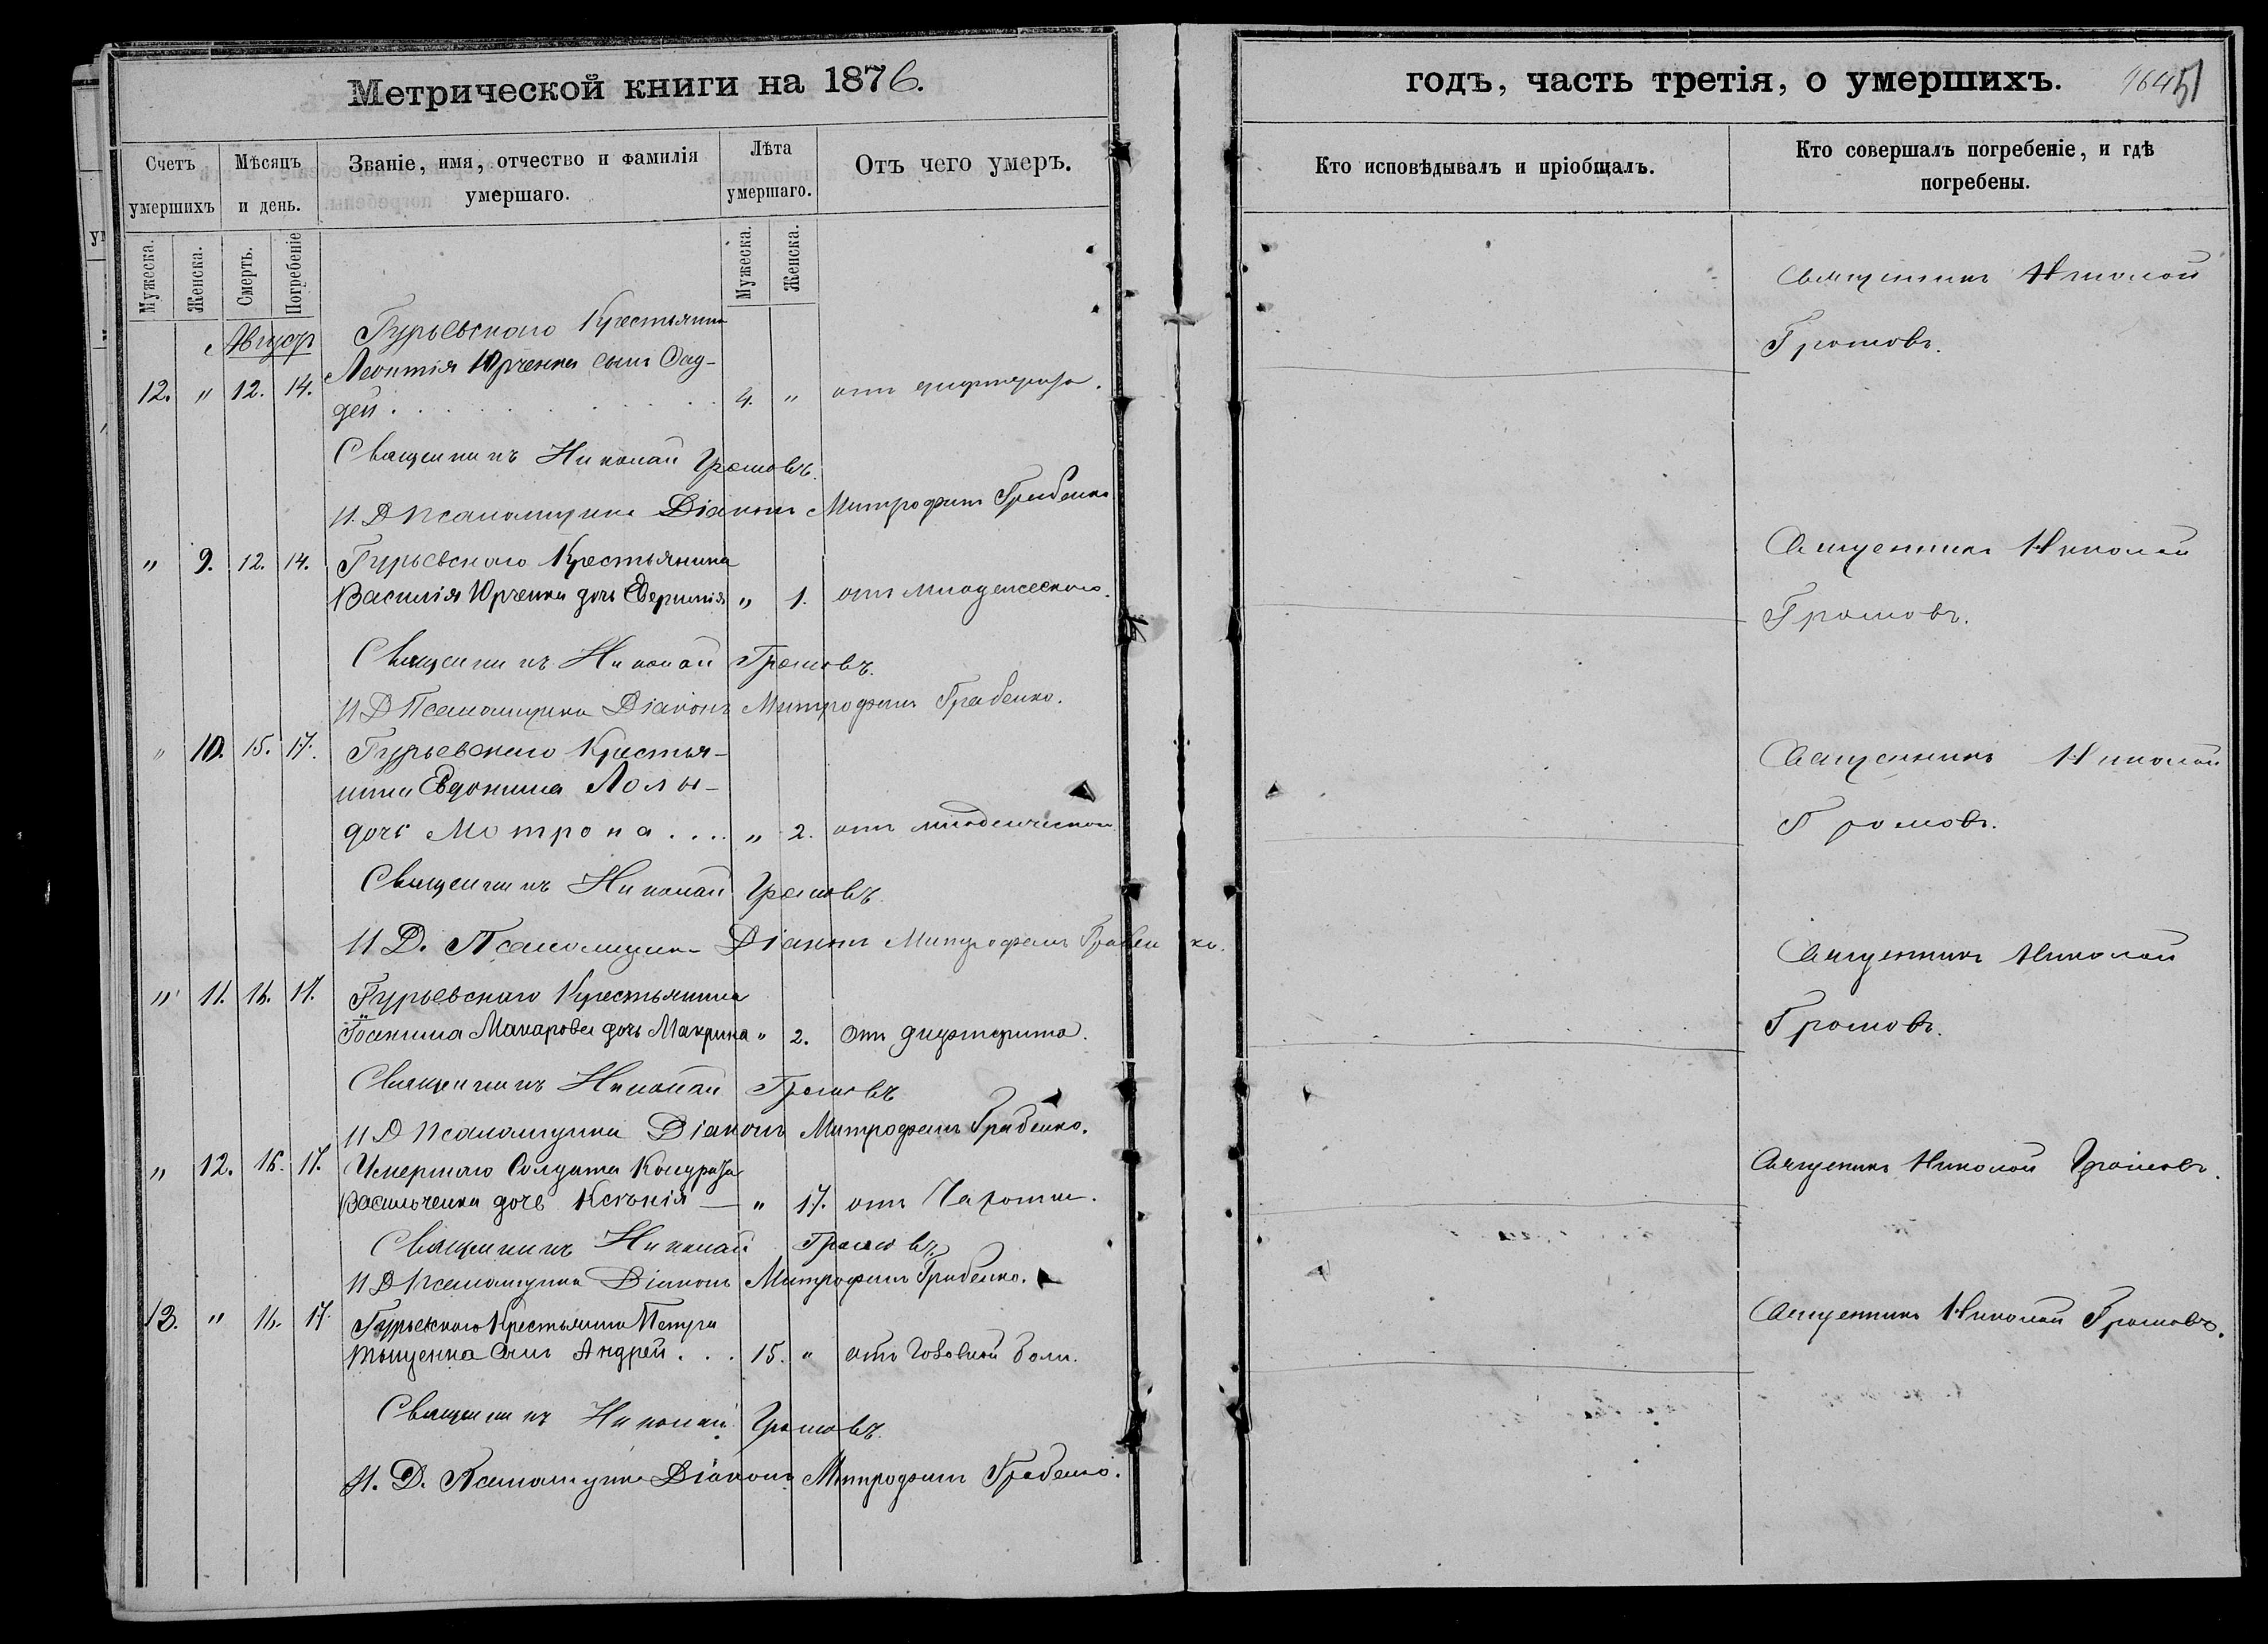 Метрической книги на 1876.
Счетъ умершихъ
Мѣсяцъ и день.
Званіе, имя, отчество и фамилія умершаго.
Лѣта умершаго.
Отъ чего умеръ.
Мужеска.
Женска.
Смерть.
Погребеніе
Мужеска.
Женска.
Август
Гурьевскаго Крестьянина
Леонтія Юрченка сынъ Фад-
12. " 12. 14. дей . . . . 4. " отъ
Священникъ Николай Громовъ.
И. Д Псаломщика Діаконъ Митрофанъ Грабенко
" 9. 12. 14. Гурьевскаго Крестьянина
Василія Юрченка дочь " 1. отъ младенческаго.
Священникъ Николай Громовъ.
И Д Псаломщика Діаконъ Митрофанъ Грабенко.
" 10. 15. 17. Гурьевскаго Крестья-
нина Евдокима
дочь Мотрона . . . . " 2. отъ младенческой
Священникъ Николай Громовъ
И Д. Псаломщика Діаконъ Митрофанъ Грабенко.
" 11. 16. 17. Гурьевскаго Крестьянина
Макарова дочь Макрина " 2. отъ дифтерита.
Священникъ Николай Громовъ
И Д Псаломщика Діаконъ Митрофанъ Грабенко.
" 12. 16. 17. Умершаго Солдата Кондрата
Васильченка дочь Ксенія — " 17. отъ Чахотки.
Священникъ Николай Громовъ.
И Д Псаломщика Діаконъ Митрофанъ Грабенко.
13. " 16. 17. Гурьевскаго Крестьянина Петра
сынъ Андрей . . . 15. " отъ Головной боли.
Священникъ Николай Громовъ
И. Д. Псаломщика Діаконъ Митрофанъ Грабенко.
годъ, часть третія, о умершихъ.
51
Кто исповѣдывалъ и пріобщалъ.
Кто совершалъ погребеніе, и гдѣ погребены.
Священникъ Николай
Громовъ.
Священникъ Николай
Громовъ.
Священникъ Николай
Громовъ.
Священникъ Николай
Громовъ.
Священникъ Николай Громовъ.
Священникъ Николай Громовъ.